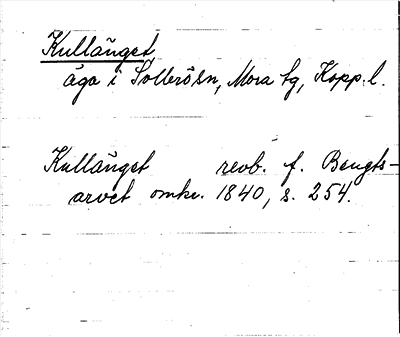 Kullänget
äga i Sollerö sn, Mora tg, Kopp. l.
Kullänget revb. f. Bengts-
arvet omkr. 1840, s. 254.